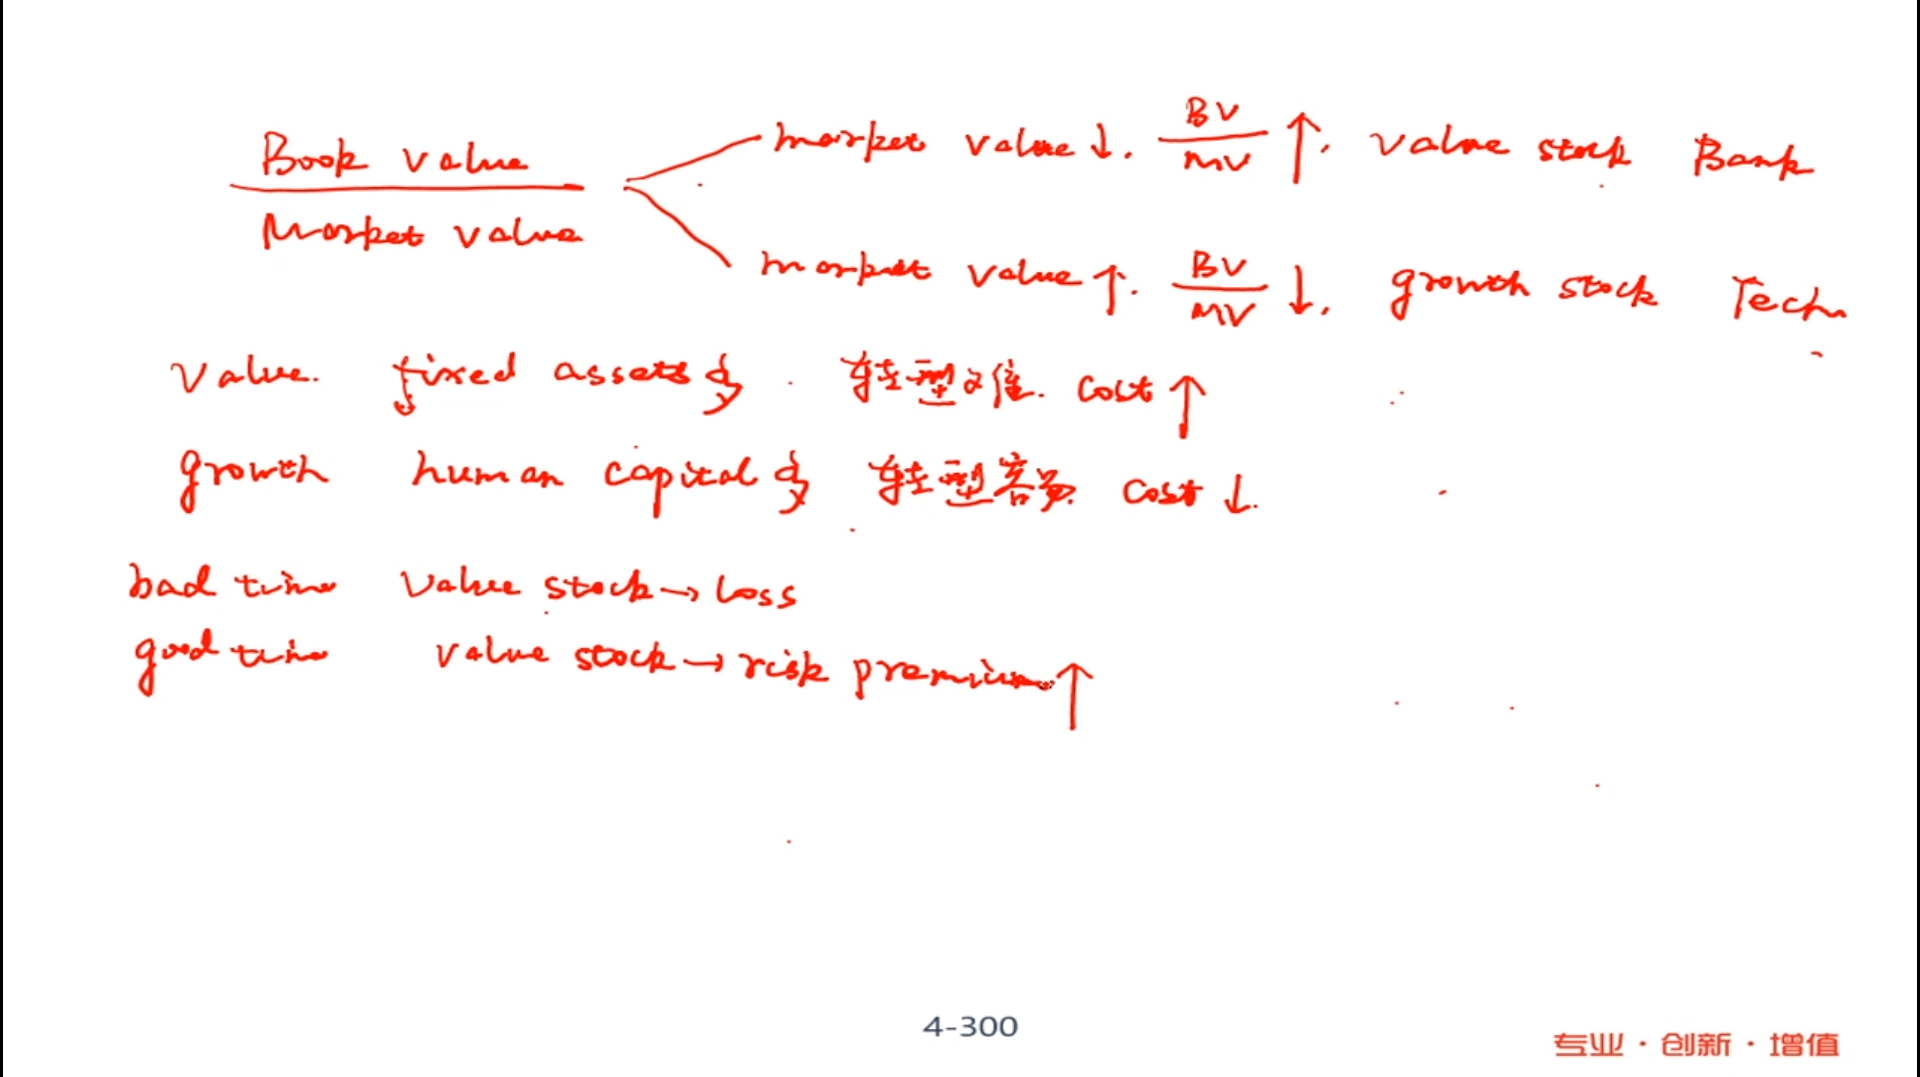 Book value
Market value
market value ↓. BV/MV ↑. value stock Bank
market value ↑. BV/MV ↓. growth stock Tech
Value. fixed assets 多. 转型又难. cost ↑
growth human capital 多 转型容易. cost ↓.
bad time value stock → loss
good time value stock → risk premium ↑
4-300
专业·创新·增值